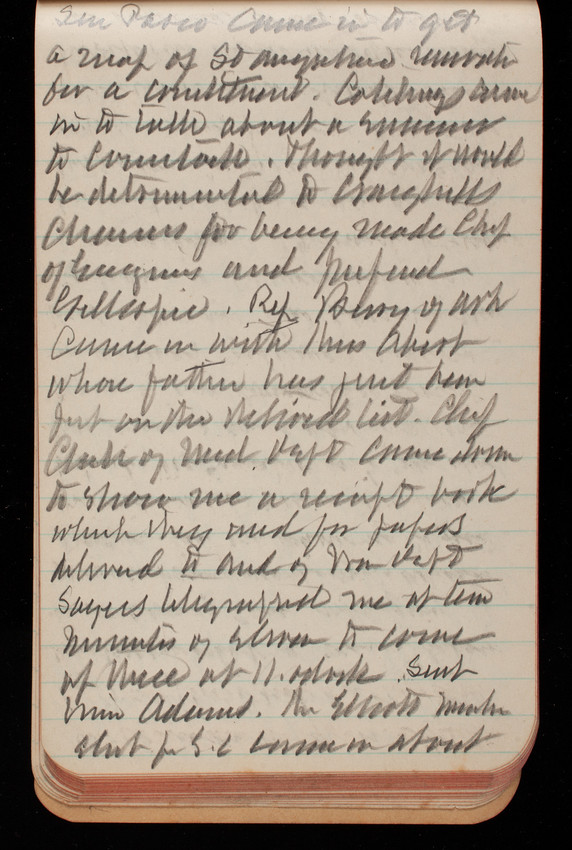 Sen Pasco came in to get
a map of St Augustine
for a constituent. Catchings came
in to talk about a
to. Thought it would
be detrimental to Craighills
chances for being made Chf
of Engineers and prefered
Gillespie. Rep Berry of Ark
came in with Miss Abert
whose father has just been
put on the retired list. Chf
Clerk of Med. Dept came down
to show me a receipt book
which they used for papers
delivered to and of War Dept
Sayers telegraphed me at ten
minutes of eleven to come
up there at 11. oclock. Sent
him Adams. Mr Elliott member
elect for S.C came in about